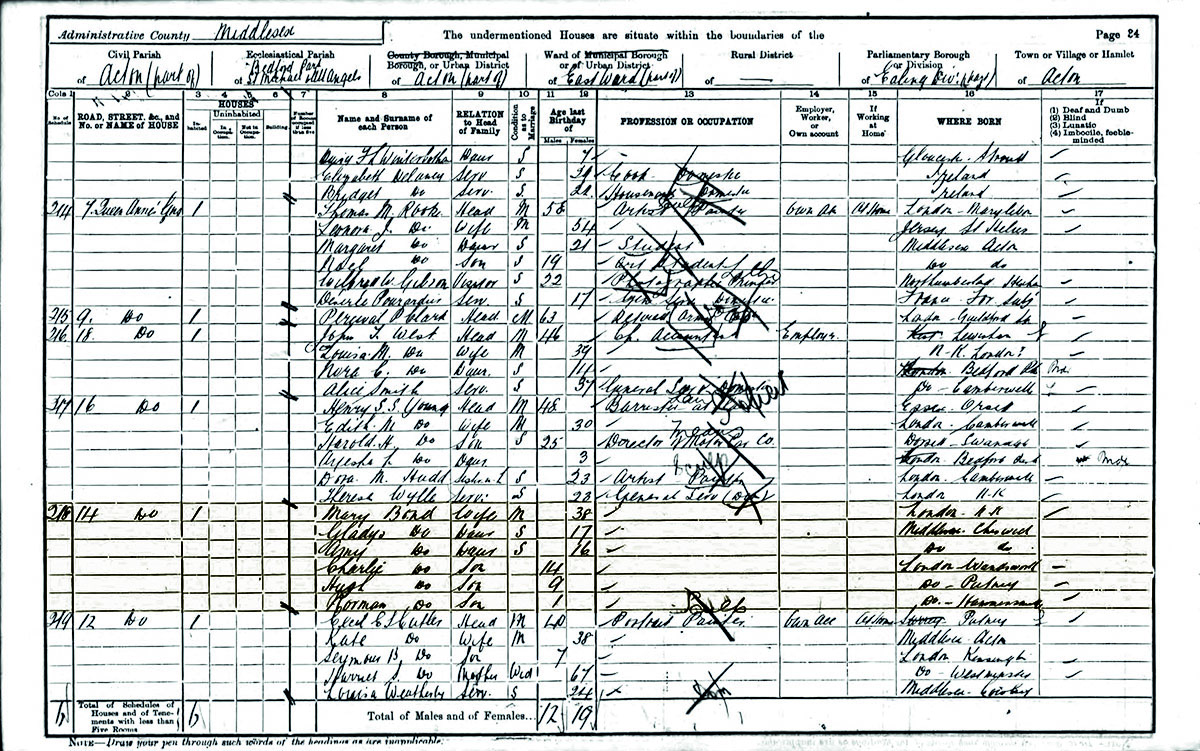 Administrative County Middlesex
The undermentioned Houses are situate within the boundaries of the
Page 24
Civil Parish
of Acton (part of)
Ecclesiastical Parish
of Bedford Park St Michael & All Angels
County Borough, Municipal Borough, or Urban District
of Acton (part of)
Ward of Municipal Borough or of Urban District
of East Ward (part of)
Rural District
of
Parliamentary Borough or Division
of Ealing Div (part)
Town or Village or Hamlet
of Acton
Cols 1 2 3 4 5 6 7 8 9 10 11 12 13 14 15 16 17
No. of Schedule
ROAD, STREET, &c., and No. or NAME of HOUSE
HOUSES
Inhabited
Uninhabited
In Occupation.
Not in Occupation.
Building
Number of Rooms occupied if less than five
Name and Surname of each Person
RELATION to Head of Family
Condition as to Marriage
Age last Birthday of
Males Females
PROFESSION OR OCCUPATION
Employer, Worker, or Own account
If Working at Home
WHERE BORN
If
(1) Deaf and Dumb
(2) Blind
(3) Lunatic
(4) Imbecile, feeble-minded
Daisy Winterbotham Daur S 7 Gloucester Stroud
Elizabeth Delaney Serv S 39 Cook Domestic Ireland
Bridget Do Serv. S 22 Housemaid Domestic Ireland
214 7 Queen Anne's Gro 1 Thomas M. Rooke Head M 58 Artist Painter Own Ac At Home London - Marylebone
Leonora J. Do Wife M 54 Jersey St Heliers
Margaret Do Daur S 21 Student Middlesex Acton
Noel Do Son S 19 Art Student Do do
W. Gibson Visitor S 22 Photographic Northumberland
Serv. S 17 France For. Subj
215 9. Do 1 Percival P. Clark Head M 63 Retired Army
216 18. Do 1 John T. West Head M 46 Ch. Accountant Employr. Kent Lewisham
Louisa M. Do Wife M 39 N.K. London?
Nora C. Do Daur. S 14 London Bedford Pk
Alice Smith Serv. S 37 General Serv Domestic Do - Camberwell
217 16 Do 1 Henry S. S. Young Head M 48 Barrister at Law Essex Orsett
Edith M Do Wife M 30 London Camberwell
Harold H. Do Son S 25 Director Motor Car Co. Dorset - Swanage
Do Daur 3 London Bedford Park
Dora M. Hudd Sister-in-L S 23 Artist Painter London. Camberwell
Theresa Wylle Serv. S 23 General Serv (Dom) London N.K
218 14 Do 1 Mary Bond Wife M 38 London - N.K
Gladys Do Daur S 17 Middlesex Chiswick
Amy Do Daur S 16 Do do
Charlie Do Son 14 London Wandsworth
Hugh Do Son 9 Do - Putney
Norman Do Son 1 Do - Hammersmith
219 12 Do 1 Cecil E. S. Cutler Head M 40 Portrait Painter Own acc At Home Surrey Putney
Kate Do Wife M 38 Middlesex Acton
Seymour B. Do Son 7 London Kensington
Harriet S. Do Mother Wid 67 Do Westminster
Louisa Weatherby Serv. S 24 Middlesex
6 Total of Schedules of Houses and of Tenements with less than Five Rooms 6
Total of Males and of Females... 12 19
NOTE—Draw your pen through such words of the headings as are inapplicable.